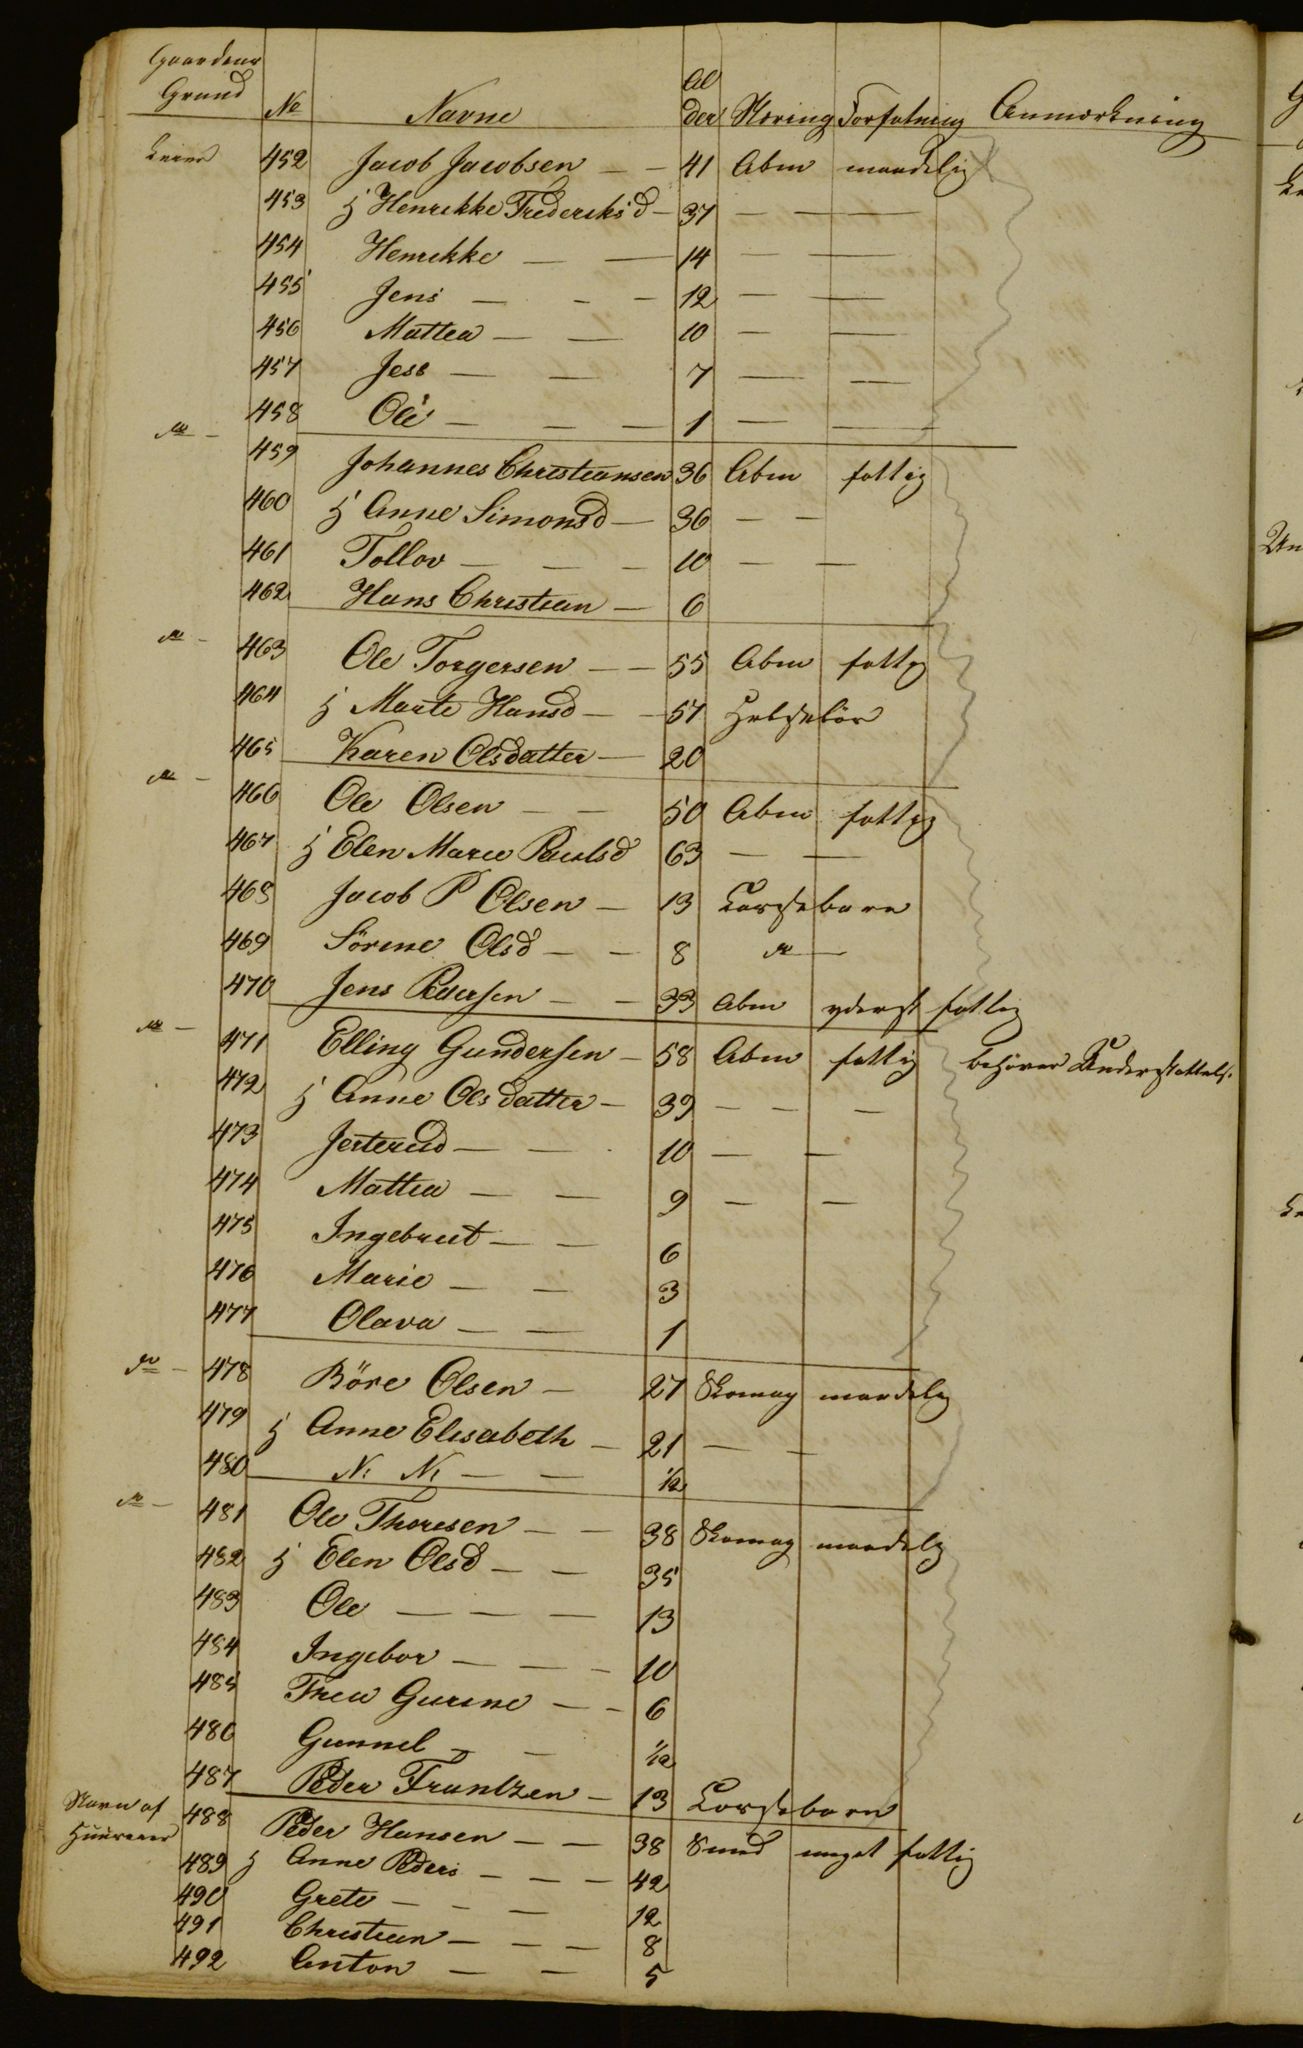 Gaardens Grund No Navne Alder Næring Forfatning Anmærkning
Leier 452 Jacob Jacobsen — — 41 Abm maadelig
453 H Henrikke Frederiksd — 37 — — —
454 Henrikke — — 14 — —
455 Jens — — — 12 — —
456 Mattea — — 10 — —
457 Jess — — 7 — —
458 Ole — — — 1 — —
do — 459 Johannes Christiansen 36 Abm fattig
460 H Anne Simonsd — 36 — —
461 Tollov — — — 10 — —
462 Hans Christian — 6
do — 463 Ole Torgersen — — 55 Abm fattig
464 H Marte Hansd — — 57
465 Karen Olsdatter — 20
do — 466 Ole Olsen — — 50 Abm fattig
467 H Elen Marie Paulsd 63 — —
468 Jacob P Olsen — 13 Lægsebarn
469 Sörine Olsd — — 8 do —
470 Jens Pedersen — — 33 Abm yderst fattig
do — 471 Elling Gundersen — 58 Abm fattig behöver Understøttels.
472 H Anne Olsdatter — 39 — — —
473 Jerterud — — 10 — —
474 Mattea — — 9 — —
475 Ingebret — — 6
476 Marie — — 3
477 Olava — — 1
do — 478 Böre Olsen — 27 Skomag maadelig
479 H Anne Elisabeth — 21 — —
480 N. N. — — 1/2
do — 481 Ole Thoresen — — 38 Skomag maadelig
482 H Elen Olsd — — 35
483 Ole — — — 13
484 Ingebor — — — 10
485 Thea Gurine — — 6
486 Gunnel — — 1/2
487 Peder Frantzen — 13 Lægsebarn
Navn af 488 Peder Hansen — — 38 Smed meget fattig
489 H Anne Peders — — — 42
490 Grete — — — 12
491 Christian — — — 8
492 Anton — — 5